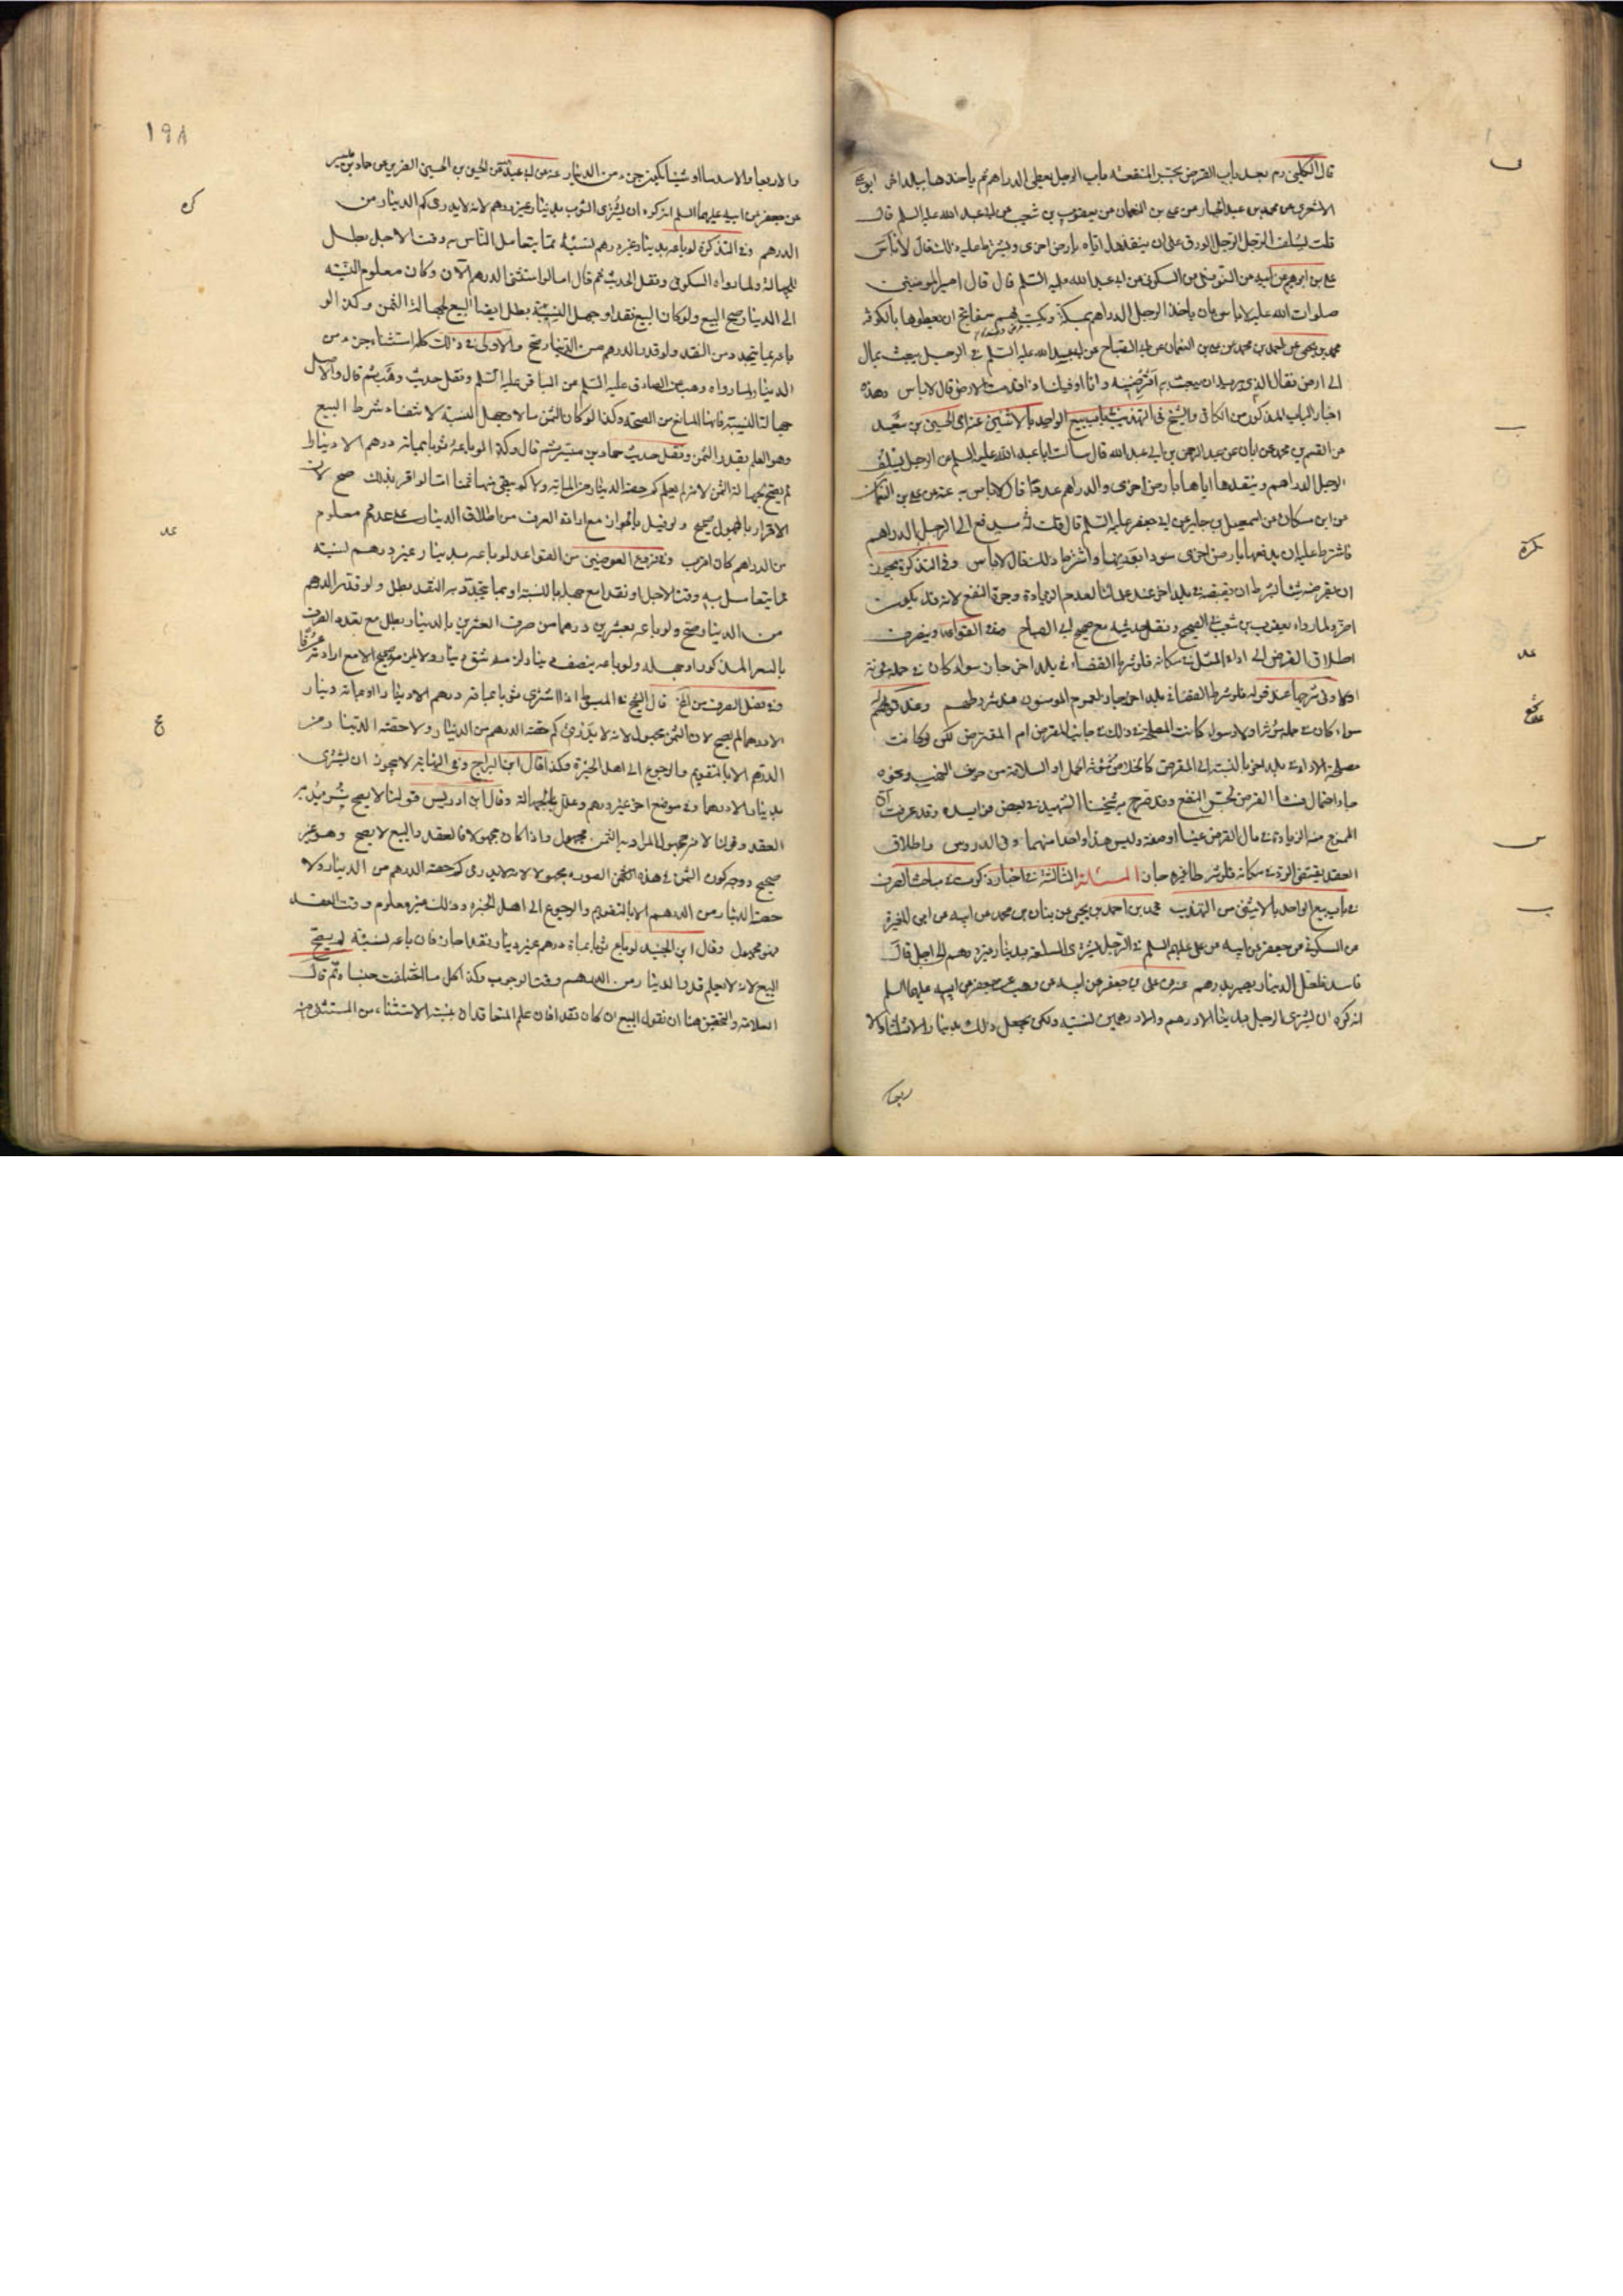 قال الكليني ره بعد باب القرض يجر المنفعة باب الرجل يعطي الدراهم ثم ياخذها ببلد اخر ابو علي
الاشعري عن محمد بن عبد الجبار عن علي بن النعمان عن يعقوب بن شعيب عن ابي عبد الله عليه السلم قال
قلت يسلف الرجل الرجل الورق على ان ينقدها اياه بارض اخرى ويشترط عليه ذلك قال لا باس
علي بن ابرهيم عن ابيه عن النوفلي عن السكوني عن ابي عبد الله عليه السلم قال قال امير المومنين
صلوات الله عليه لا باس بان ياخذ الرجل الدراهم بمكة ويكتب لهم سفاتج ان يعطوها بالكوفة
محمد بن يحيى عن احمد بن محمد عن علي بن النعمان عن ابي الصباح عن ابي عبد الله عليه السلم في الرجل يبعث بمال
الى ارض فقال الذي يريد ان يبعث به اقرضنيه وانا اوفيك اذا قدمت الارض قال لا باس وهذه
اخبار الباب المذكور من الكافي والشيخ في التهذيب باب بيع الواحد بالاثنين عنه اي الحسين بن سعيد
عن القسم بن محمد عن ابان عن عبد الرحمن بن ابي عبد الله قال سالت ابا عبد الله عليه السلم عن الرجل يسلف
الرجل الدراهم وينقدها اياها بارض اخرى والدراهم عددا قال لا باس به عنه عن علي بن النعمان
عن ابن مسكان عن اسمعيل بن جابر عن ابي جعفر عليه السلم قال قلت له يدفع الى الرجل الدراهم
فاشترط عليه ان يدفعها بارض اخرى سودا بوزنها واشترط ذلك قال لا باس وفي التذكرة يجوز
ان يقرضه شيئا بشرط ان يقبضه في بلد اخر عند علمائنا لعدم الزيادة وجرة النفع لانه قد يكون
اضر ولما رواه يعقوب بن شعيب في الصحيح ونقل حديثه مع صحيح ابي الصباح وفي القواعد وينصرف
اطلاق القرض الى اداء المثل في مكانه فلو شرطا القضاء في بلد اخر جاز سواء كان في حمله مؤنة
سواء كان في حمله مؤنة او لا وسواء كانت المصلحة في ذلك في جانب المقرض ام المقترض لكن لو كانت
الممنوع منه الزيادة في مال القرض عينا او صفة وليس هذا واحدا منهما وفي الدروس واطلاق
العقد يقتضي الرد في مكانه فلو شرطا غيره جاز المسئلة الثالثة في اخبار مذكورة في مباحث الصرف
في باب بيع الواحد بالاثنين من التهذيب محمد بن احمد بن يحيى عن بنان بن محمد عن ابيه عن ابن المغيرة
عن السكوني عن جعفر عن ابيه عن علي عليهم السلم في الرجل يشتري السلعة بدينار غير درهم الى اجل قال
فاسد فلعل الدينار يصير بدرهم عنه عن علي بن جعفر عن ابيه عن وهب عن جعفر عن ابيه عليهما السلم
انه كره ان يشتري الرجل بدينار الا درهم والا درهمين نسية ولكن يجعل ذلك بدينار الا ثلثا والا
ربعا
١٩٨
والا ربعا والا سدسا او شيئا يكون جزء من الدينار عنه عن ابي عبد الله عن الحسين بن الحسين الضرير عن حماد بن ميسر
عن جعفر عن ابيه عليهما السلم انه كره ان يشترى الثوب بدينار غير درهم لانه لا يدرى كم الدينار من
الدرهم وفي التذكرة لو باعه بدينار غير درهم نسية مما يتعامل الناس به وقت الاجل بطل
للجهالة ولما رواه السكوني ونقل الحديث ثم قال اما لو استثنى الدرهم الان وكان معلوم النسبة
الى الدينار صح البيع ولو كان البيع نقدا وجهل النسبة بطل ايضا البيع لجهالة الثمن وكذا لو
باعه بما يتجدد من النقد ولو قدر الدرهم من الدينار صح والاولى في ذلك كله استثناء جزء من
الدينار لما رواه وهب عن الصادق عليه السلم عن الباقر عليه السلم ونقل حديث وهب ثم قال والاصل
جهالة النسبة فانها المانع من الصحة وكذا لو كان الثمن حالا وجهل النسبة لانتفاء شرط البيع
وهو العلم بقدر الثمن ونقل حديث حماد بن ميسر ثم قال وكذا لو باعه ثوبا بمائة درهم الا دينارا
لم يصح لجهالة الثمن لانه لم يعلم كم حصة الدينار من المائة ولا كم يبقى منها ثمنا اما لو اقر بذلك صح لان
الاقرار بالمجهول صحيح ولو قيل بالجواز مع ارادة الصرف من اطلاق الدينار على عدد معلوم
من الدراهم كان اقرب وفي فروع العوضين من القواعد لو باعه بدينار غير درهم نسية
مما يتعامل به وقت الاجل او نقدا مع جهله بالنسبة او بما يتجدد به النقد بطل ولو قدر الدرهم
من الدينار صح ولو باعه بعشرين درهما من صرف العشرين بالدينار بطل مع تعدد الصرف
الا درهما لم يصح لان الثمن مجهول لانه لا يدرى كم حصة الدرهم من الدينار ولا حصة الدينار من
الدرهم الا بالتقويم والرجوع الى اهل الخبرة وكذا قال ابن البراج وفي النهاية لا يجوز ان يشترى
بدينار الا درهما وفي موضع اخر غير درهم وعلل بالجهالة وقال ابن ادريس قولنا لا يصح
العقد وقولنا لانه مجهول المراد به الثمن مجهول واذا كان مجهولا فالعقد والبيع لا يصح وهو غير
صحيح ووجه كون الثمن في هذه الصورة مجهولا لانه لا يدرى كم حصة الدرهم من الدينار ولا
حصة الدينار من الدرهم الا بالتقويم والرجوع الى اهل الخبرة وذلك غير معلوم وقت العقد
فهو مجهول وقال ابن الجنيد لو باع ثوبا بمائة درهم غير دينار نقدا جاز فان باعه نسية لم يصح
البيع لانه لا يعلم قدر الدينار من الدرهم وقت الوجوب وكذا كل ما اختلفت جنساه ثم قال
العلامة والتحقيق هنا ان نقول البيع ان كان نقدا فان علم المتعاقدان نسبة الاستثناء من المستثنى منه